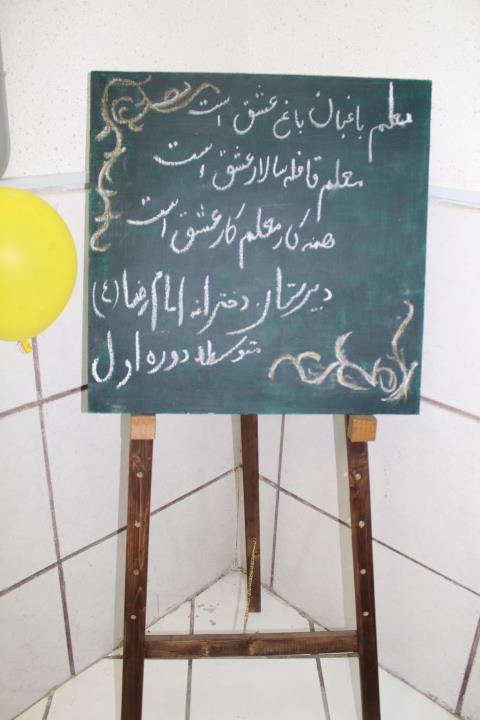 معلم باغبان باغ عشق است
معلم قافله سالار عشق است
همه کار معلم کار عشق است
دبیرستان دخترانه امام رضا (ع)
متوسطه دوره اول